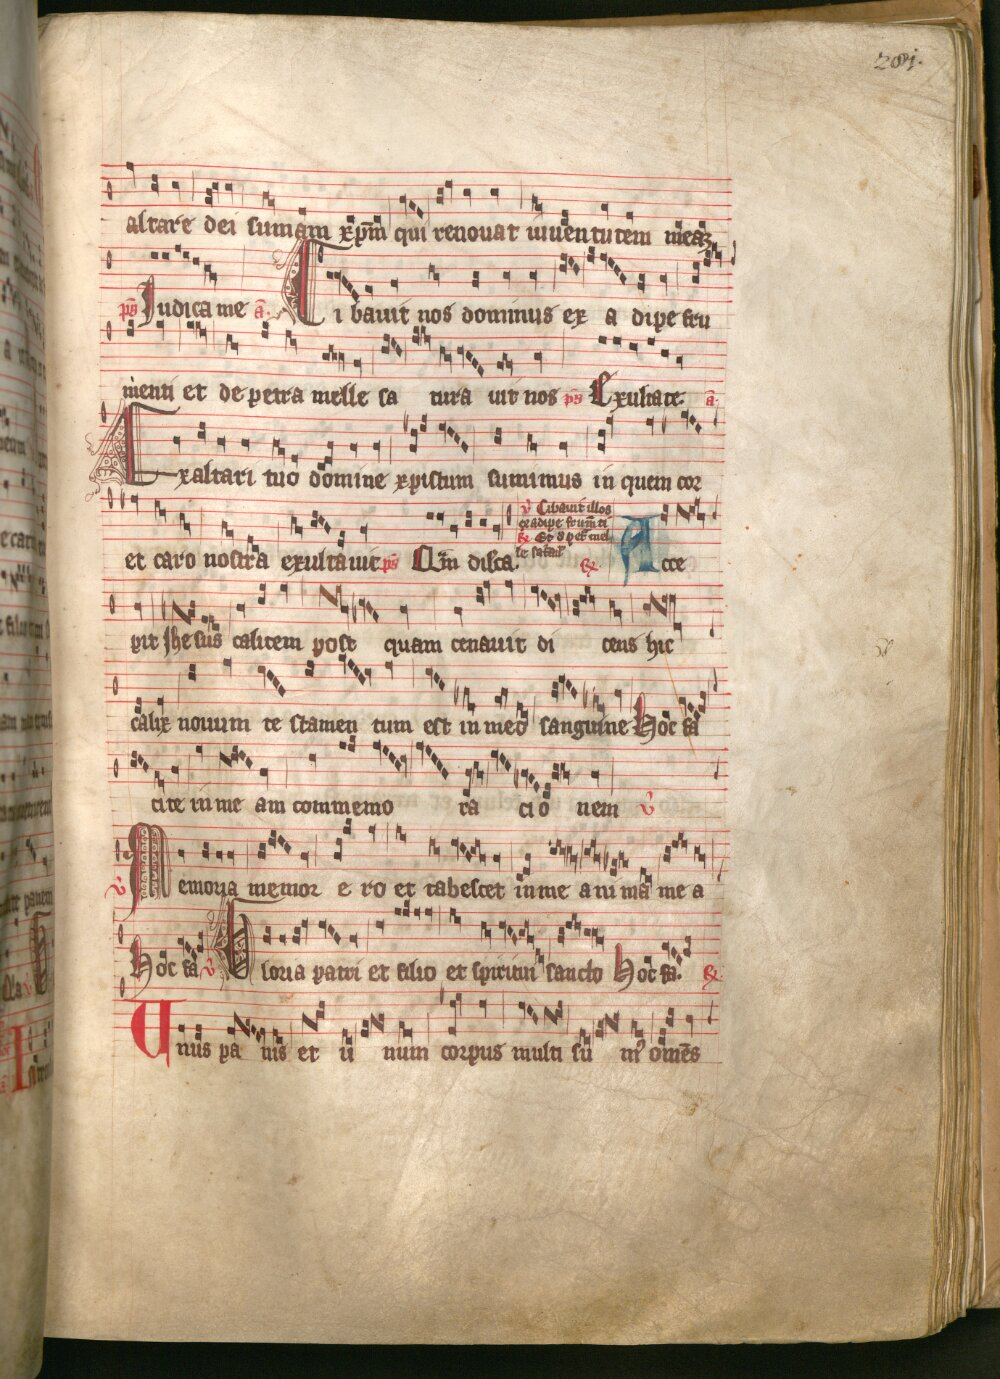 201.
altare dei sumam xp̄m qui renouat iuuentutem meaꝫ
p̄s Iudica me a̅.
Cibauit nos dominus ex a dipe fru
menti et de petra melle sa tura uit nos p̄s Exultate. a̅.
Ex altari tuo domine xpistum sumimus in quem cor
et caro nostra exultauit. p̄s Qm̄ dilca.
v̄ Cibauit illos
ex adipe frum̄ti
℞ Et d̄ pet͛ mel
le satau͛
℞ Acce
pit Jhesus calicem post quam cenauit di cens hic
calix nouum te stamen tum est in meo sanguine Hoc fa
cite in me am commemo ra ci o nem v̄
v̄ Memoria memor e ro et tabescet in me a ni ma me a
Hoc fa v̄ Gloria patri et filio et spiritui sancto Hoc fa. ℞
Unus pa nis et u num corpus multi su m᷒ om̄es